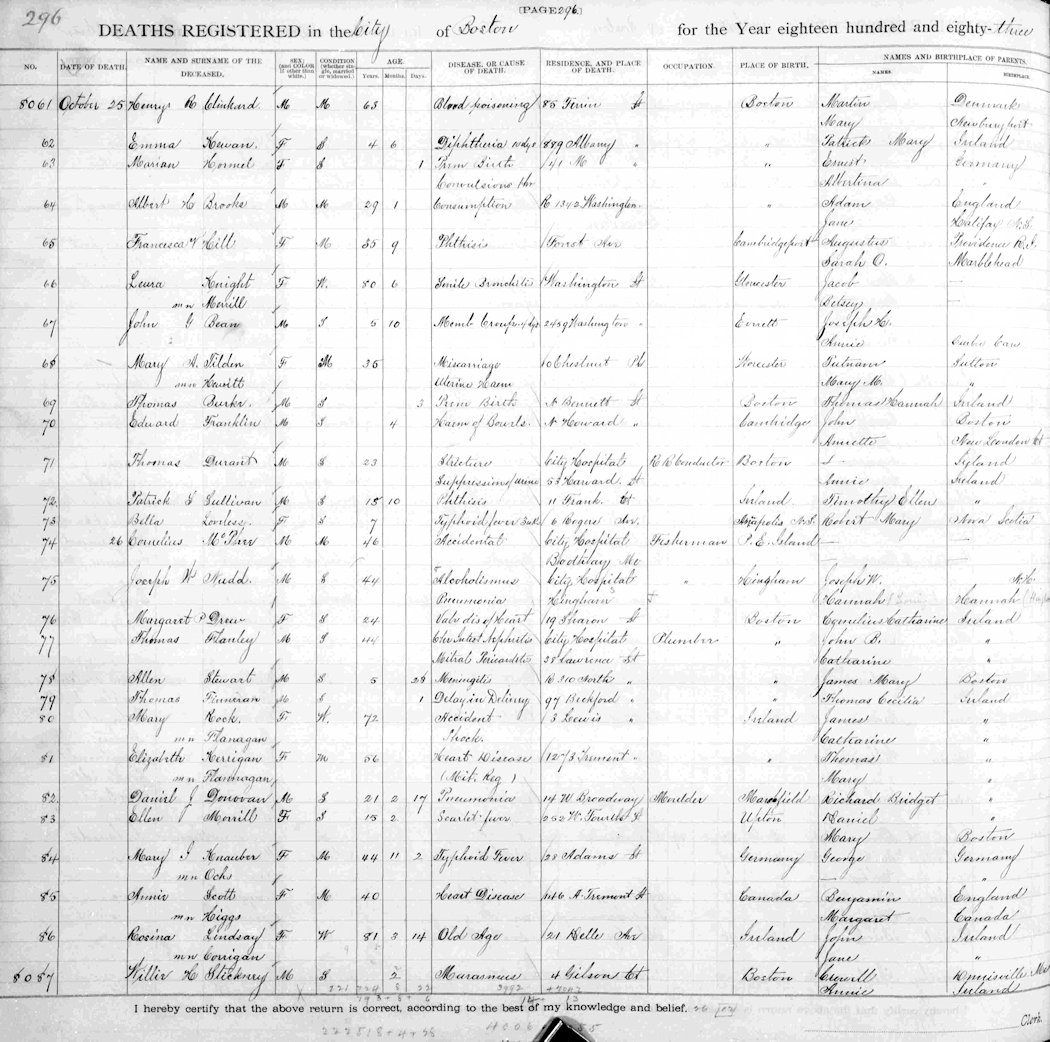 296
[PAGE 296]
DEATHS REGISTERED in the City of Boston for the Year eighteen hundred and eighty-three
NO. DATE OF DEATH. NAME AND SURNAME OF THE DECEASED. SEX; (and COLOR if other than white.) CONDITION (whether single, married or widowed.) AGE. Years. Months. Days. DISEASE, OR CAUSE OF DEATH. RESIDENCE, AND PLACE OF DEATH. OCCUPATION. PLACE OF BIRTH. NAMES AND BIRTHPLACE OF PARENTS. NAMES. BIRTHPLACE.
8061 October 25 Henry R Clinkard. M M 63 Blood poisoning 85 St Boston Martin Denmark
Mary Newburyport
62 Emma F S 4 6 Diphtheria 10 dys 889 Albany " " Patrick Mary Ireland
63 Marian Hormel F S 1 Prem Birth 41 M " " Ernest Germany
Convulsions Albertina "
64 Albert H Brooks M M 29 1 Consumption R 1342 Washington " Adam England
Jane Halifax N.S.
65 Francisca Hill F M 35 9 Phthisis Forest Av Cambridgeport Augustus Providence R.I.
Sarah O. Marblehead
66 Leura Knight F W. 80 6 Senile Bronchitis Washington St Gloucester Jacob —
mn Merrill Betsey —
67 John G Bean M S 5 10 Memb Croup 2459 Washington " Everett Joseph H.
Annie
68 Mary A. Tilden F M 35 Miscarriage 10 Chestnut Pk Worcester Putnam Sutton
mn Hewitt Uterine Haem Mary M. "
69 Thomas Burke. M S 3 Prem Birth N Bennett St Boston Thomas Hannah Ireland
70 Edward Franklin M S 4 Haem of Bowels. N Howard " Cambridge John Boston
Annette New London Ct
71 Thomas Durant M S 23 Stricture City Hospital R R Conductor Boston — Ireland
Suppression Urine 53 Harvard. St Annie Ireland
72 Patrick J Sullivan M S 18 10 Phthisis 11 Frank. St Ireland Timothy Ellen "
73 Bella F S 7 Typhoid fever 6 Av. Anapolis N.S. Robert Mary Nova Scotia
74 26 Cornelius M M 46 Accidental City Hospital Fisherman P. E. Island — —
Boothbay Me —
75 Joseph W Nudd. M S 44 Alcoholismus City Hospital " Hingham Joseph W. N.H.
Pneumonia Hingham Hannah
76 Margaret P Drew F S 24 Valv dis of Heart 19 Sharon St Boston Cornelius Catharine Ireland
77 Thomas Flanley M S 44 Chr Interst Nephritis City Hospital Plumber " John B. "
Mitral Pericarditis 28 Lawrence St Catharine "
78 Allen Stewart M S 5 28 Meningitis R 310 North " " James Mary Boston
79 Thomas Finneran M S 1 Delay in Delivery 97 Beckford " " Thomas Cecilia Ireland
80 Mary Rock. F W. 72 Accident 3 Lewis " Ireland James "
mn Flanagan Shock. Catharine "
81 Elizabeth Kerrigan F M 56 Heart Disease 1273 Tremont " " Thomas "
mn Flannagan (Mit. Reg) Mary "
82 Daniel J Donovan M S 21 2 17 Pneumonia 14 W Broadway Moulder Marshfield Richard Bridget "
83 Ellen Morrill F S 15 2 Scarlet fever 252 W. Fourth St Upton Daniel "
Mary Boston
84 Mary J Knauber F M 44 11 2 Typhoid Fever 28 Adams St Germany George Germany
mn Ochs — "
85 Annie Scott F M 40 Heart Disease 1146 A Tremont St Canada Benjamin England
mn Higgs Margaret Canada
86 Rosina Lindsay F W 81 3 14 Old Age 121 Belle Av Ireland John Ireland
mn Corrigan Jane "
8087 Willie H Stickney M S 2 Marasmus 4 Gilson Ct Boston
Annie Ireland
I hereby certify that the above return is correct, according to the best of my knowledge and belief.
Clerk.